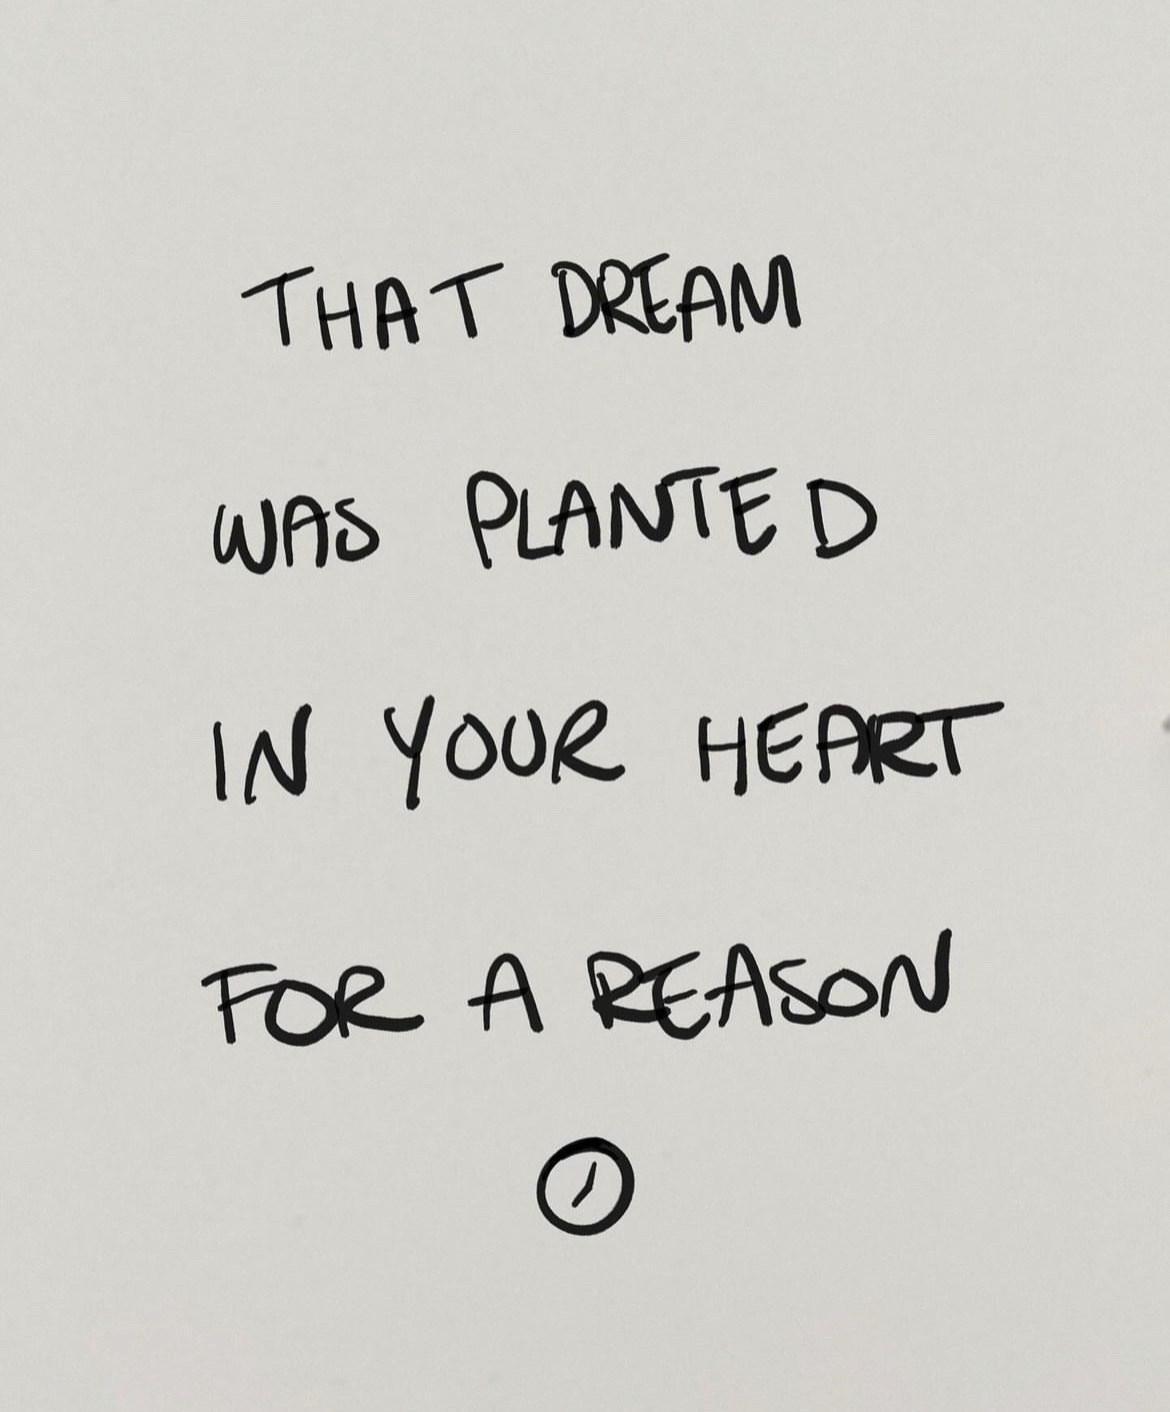 THAT DREAM
WAS PLANTED
IN YOUR HEART
FOR A REASON